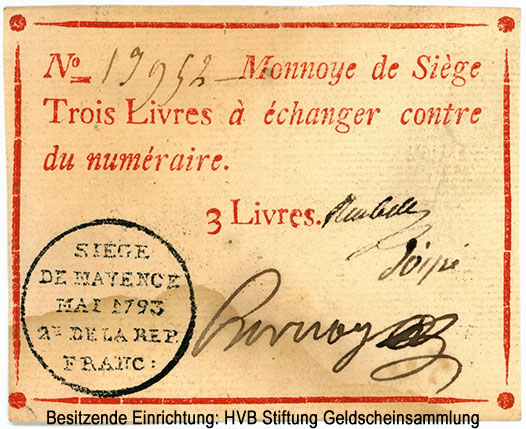 No 13952 Monnoye de Siège
Trois Livres à échanger contre
du numéraire.
3 Livres.
SIÉGE
DE MAYENCE
MAI 1793
2E DE LA REP.
FRANC:
Besitzende Einrichtung: HVB Stiftung Geldscheinsammlung